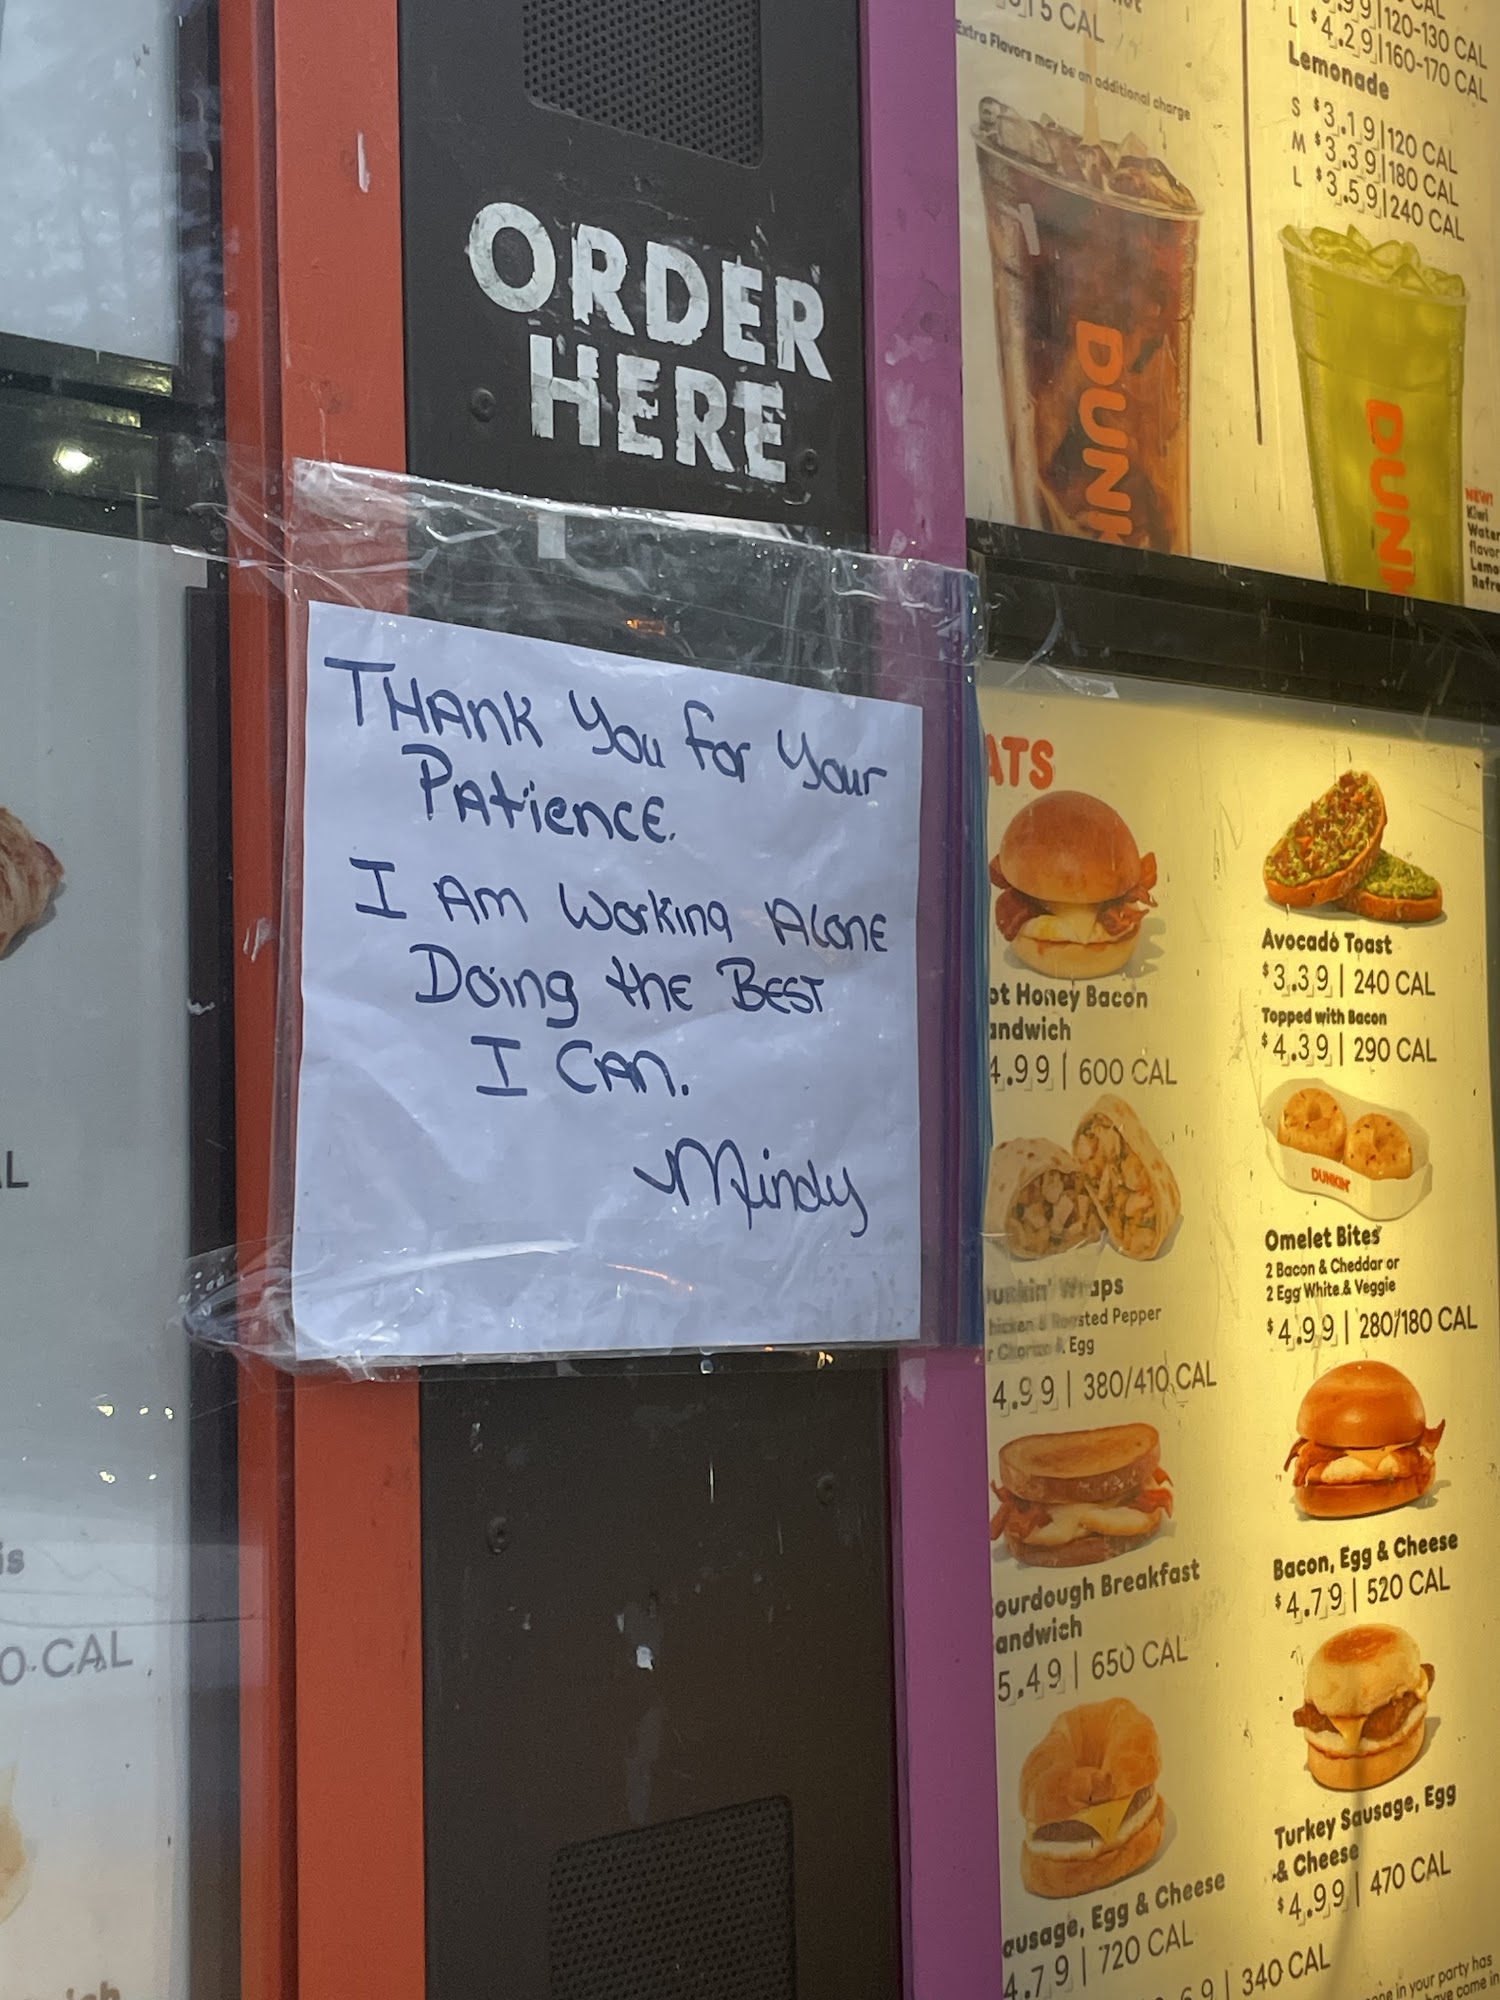 015 CAL
Extra Flavors may be an additional charge
L $4.29|160-170 CAL
120-130 CAL
Lemonade
S $3.19|120 CAL
M $3.39|180 CAL
L $3.59|240 CAL
ORDER
HERE
DUNK
DUNK
NEW!
Kiwi
Water
flavor
Lemo
Refre
THANK You for Your
PATIENCE.
I AM Working ALONE
Doing the BEST
I CAN.
Mindy
ATS
ot Honey Bacon
andwich
4.99 | 600 CAL
Avocado Toast
$3.39 | 240 CAL
Topped with Bacon
$4.39 | 290 CAL
DUNKIN'
unkin' Wraps
hicken & Roasted Pepper
r Chorizo & Egg
4.99 | 380/410 CAL
Omelet Bites
2 Bacon & Cheddar or
2 Egg White & Veggie
$4.99 | 280/180 CAL
ourdough Breakfast
andwich
5.49 | 650 CAL
Bacon, Egg & Cheese
$4.79 | 520 CAL
ausage, Egg & Cheese
4.79 | 720 CAL
Turkey Sausage, Egg
& Cheese
$4.99 | 470 CAL
.69 | 340 CAL
one in your party has
have come in
L
is
0 CAL